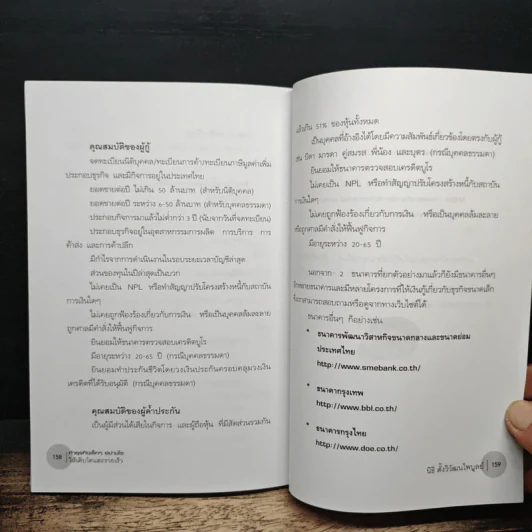 คุณสมบัติของผู้กู้
จดทะเบียนนิติบุคคล/ทะเบียนการค้า/ทะเบียนภาษีมูลค่าเพิ่ม
ประกอบธุรกิจ และมีกิจการอยู่ในประเทศไทย
ยอดขายต่อปี ไม่เกิน 50 ล้านบาท (สำหรับนิติบุคคล)
ยอดขายต่อปี ระหว่าง 6-50 ล้านบาท (สำหรับบุคคลธรรมดา)
ประกอบกิจการมาแล้วไม่ต่ำกว่า 3 ปี (นับจากวันที่จดทะเบียน)
ประกอบธุรกิจอยู่ในอุตสาหกรรมการผลิต การบริการ การ
ค้าส่ง และการค้าปลีก
มีกำไรจากการดำเนินงานในรอบระยะเวลาบัญชีล่าสุด
ส่วนของทุนในปีล่าสุดเป็นบวก
ไม่เคยเป็น NPL หรือทำสัญญาปรับโครงสร้างหนี้กับสถาบัน
การเงินใดๆ
ไม่เคยถูกฟ้องร้องเกี่ยวกับการเงิน หรือเป็นบุคคลล้มละลาย
ถูกศาลมีคำสั่งให้ฟื้นฟูกิจการ
ยินยอมให้ธนาคารตรวจสอบเครดิตบูโร
มีอายุระหว่าง 20-65 ปี (กรณีบุคคลธรรมดา)
ยินยอมทำประกันชีวิตโดยวงเงินประกันครอบคลุมวงเงิน
เครดิตที่ได้รับอนุมัติ (กรณีบุคคลธรรมดา)
คุณสมบัติของผู้ค้ำประกัน
เป็นผู้มีส่วนได้เสียในกิจการ และผู้ถือหุ้น ที่มีสัดส่วนรวมกัน
158
แล้วเกิน 51% ของหุ้นทั้งหมด
เป็นบุคคลที่อ้างอิงได้โดยมีความสัมพันธ์เกี่ยวข้องโดยตรงกับผู้กู้
เช่น บิดา มารดา คู่สมรส พี่น้อง และบุตร (กรณีบุคคลธรรมดา)
ยินยอมให้ธนาคารตรวจสอบเครดิตบูโร
ไม่เคยเป็น NPL หรือทำสัญญาปรับโครงสร้างหนี้กับสถาบัน
การเงินใดๆ
ไม่เคยถูกฟ้องร้องเกี่ยวกับการเงิน หรือเป็นบุคคลล้มละลาย
หรือถูกศาลมีคำสั่งให้ฟื้นฟูกิจการ
มีอายุระหว่าง 20-65 ปี
นอกจาก 2 ธนาคารที่ยกตัวอย่างมาแล้วก็ยังมีธนาคารอื่นๆ
อีกหลายธนาคารและมีหลายโครงการที่ให้เงินกู้เกี่ยวกับธุรกิจขนาดเล็ก
ซึ่งเราสามารถสอบถามหรือดูจากทางเว็บไซต์ได้
ธนาคารอื่นๆ ก็อย่างเช่น
• ธนาคารพัฒนาวิสาหกิจขนาดกลางและขนาดย่อม
ประเทศไทย
http://www.smebank.co.th/
• ธนาคารกรุงเทพ
http://www.bbl.co.th/
• ธนาคารกรุงไทย
http://www.doe.co.th/
159